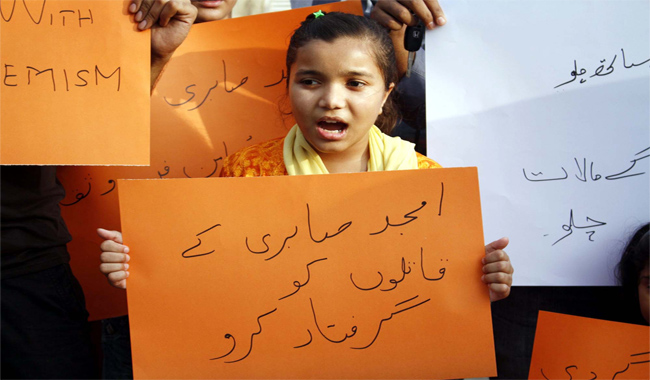 WITH
EMISM
صابری
امجد صابری کے
قاتلوں کو
گرفتار کرو
ساتھ چلو
کے حالات
چلو
گردی